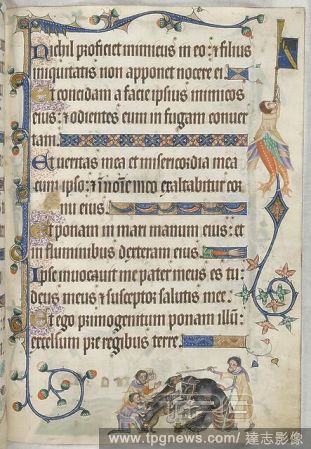 Nichil proficiet inimicus in eo: et filius
iniquitatis non apponet nocere ei
Et concidam a facie ipsius inimicos
eius: et odientes eum in fugam conuer
tam.
Et ueritas mea et misericordia mea
cum ipso: et in noie meo exaltabitur cor
nu eius.
Et ponam in mari manum eius: et
in fluminibus dexteram eius.
Ipse inuocauit me pater meus es tu:
deus meus et susceptor salutis mee.
Et ego primogenitum ponam illū:
excelsum pre regibus terre.
www.tpgnews.com/達志影像